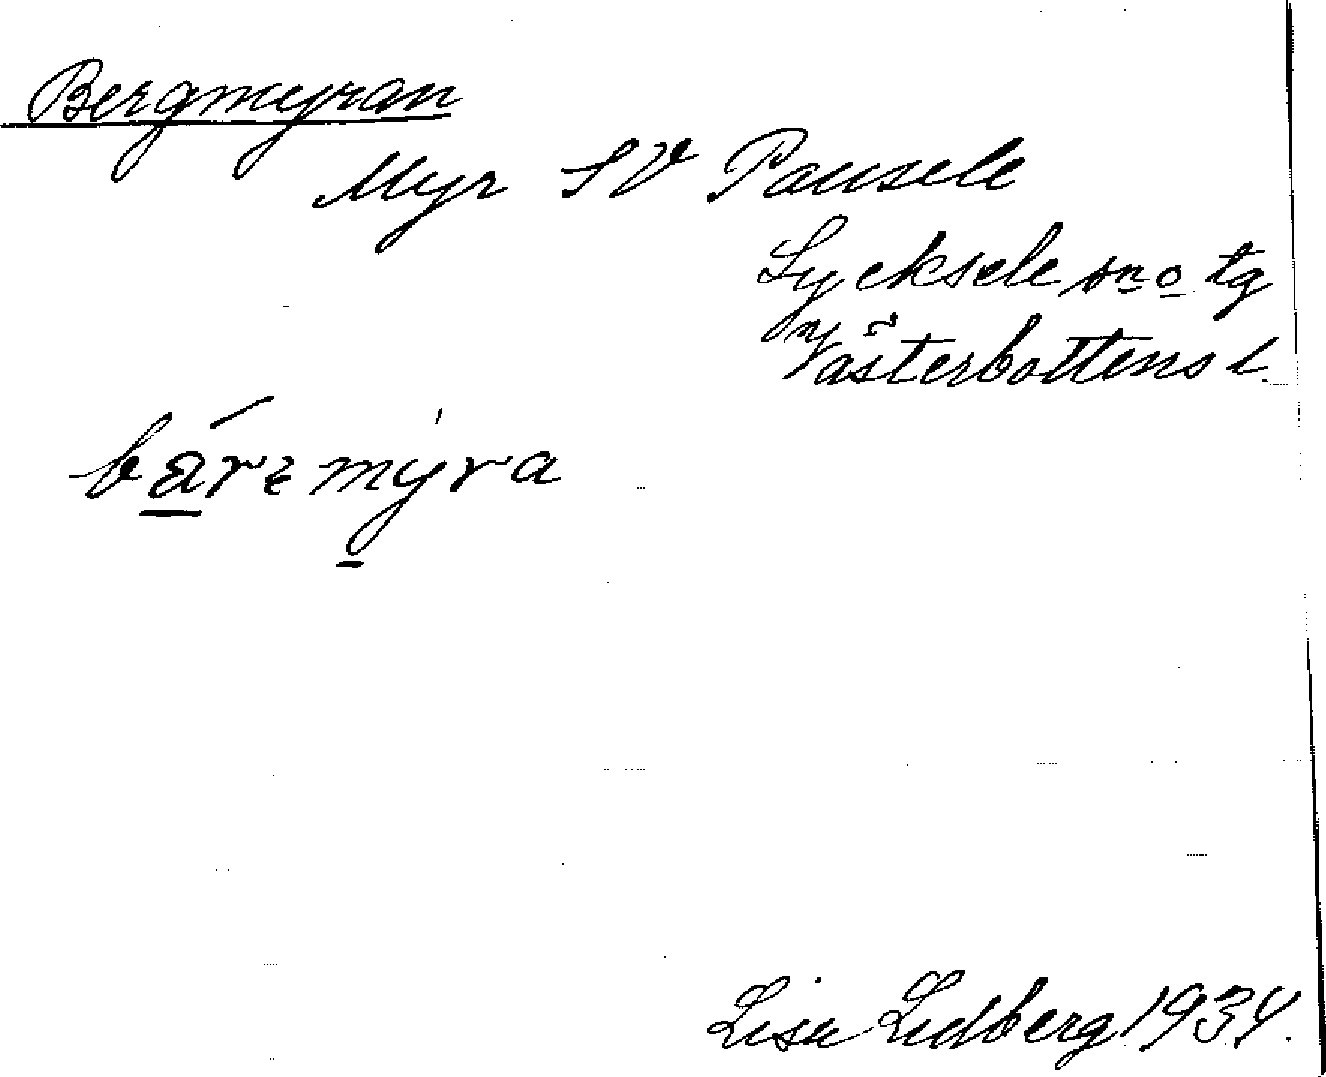 Bergmyran
Myr SV Pausele
Lycksele sn o tg
Västerbottens l.
bärɛmyra
Lisa Lidberg 1934.